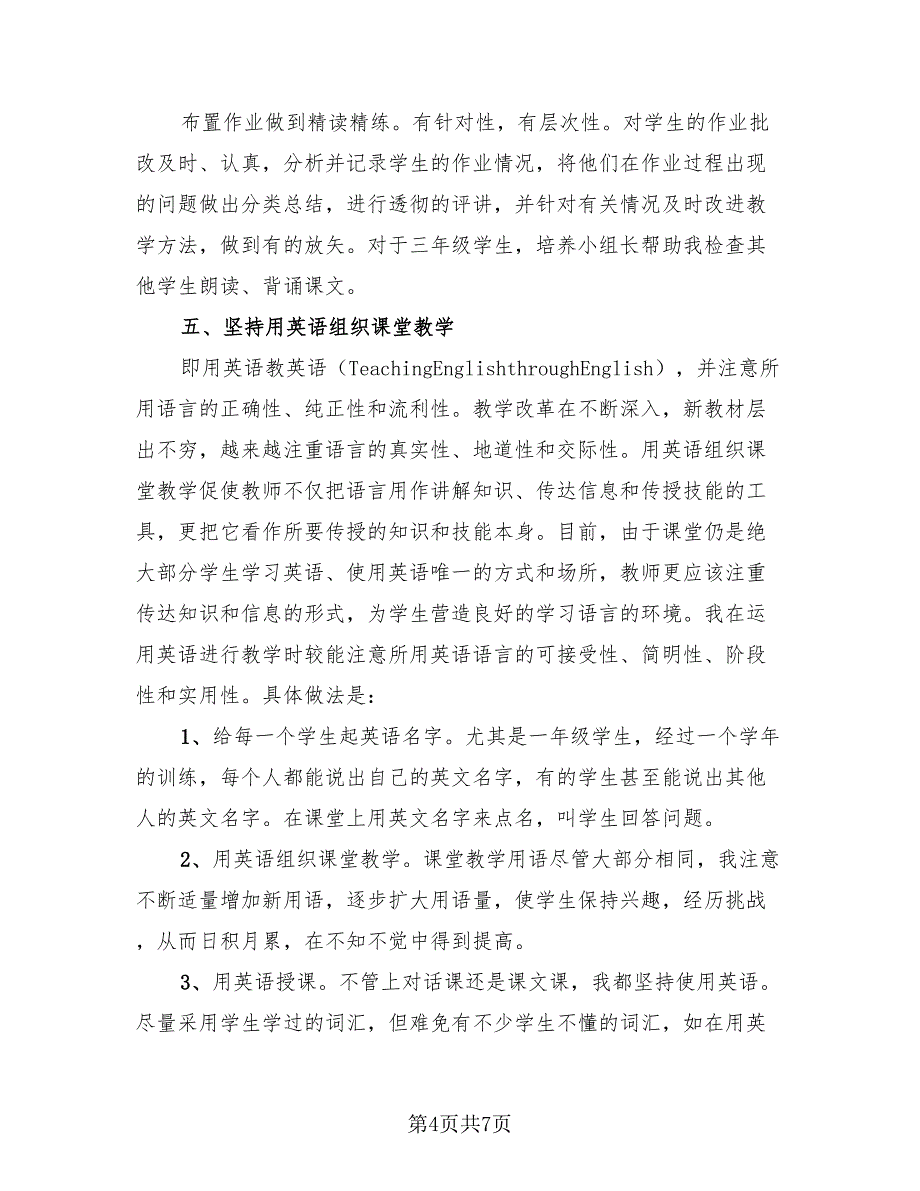 布置作业做到精读精练。有针对性，有层次性。对学生的作业批
改及时、认真，分析并记录学生的作业情况，将他们在作业过程出现
的问题做出分类总结，进行透彻的评讲，并针对有关情况及时改进教
学方法，做到有的放矢。对于三年级学生，培养小组长帮助我检查其
他学生朗读、背诵课文。
五、坚持用英语组织课堂教学
即用英语教英语（TeachingEnglishthroughEnglish），并注意所
用语言的正确性、纯正性和流利性。教学改革在不断深入，新教材层
出不穷，越来越注重语言的真实性、地道性和交际性。用英语组织课
堂教学促使教师不仅把语言用作讲解知识、传达信息和传授技能的工
具，更把它看作所要传授的知识和技能本身。目前，由于课堂仍是绝
大部分学生学习英语、使用英语唯一的方式和场所，教师更应该注重
传达知识和信息的形式，为学生营造良好的学习语言的环境。我在运
用英语进行教学时较能注意所用英语语言的可接受性、简明性、阶段
性和实用性。具体做法是：
1、给每一个学生起英语名字。尤其是一年级学生，经过一个学年
的训练，每个人都能说出自己的英文名字，有的学生甚至能说出其他
人的英文名字。在课堂上用英文名字来点名，叫学生回答问题。
2、用英语组织课堂教学。课堂教学用语尽管大部分相同，我注意
不断适量增加新用语，逐步扩大用语量，使学生保持兴趣，经历挑战
，从而日积月累，在不知不觉中得到提高。
3、用英语授课。不管上对话课还是课文课，我都坚持使用英语。
尽量采用学生学过的词汇，但难免有不少学生不懂的词汇，如在用英
第4页共7页